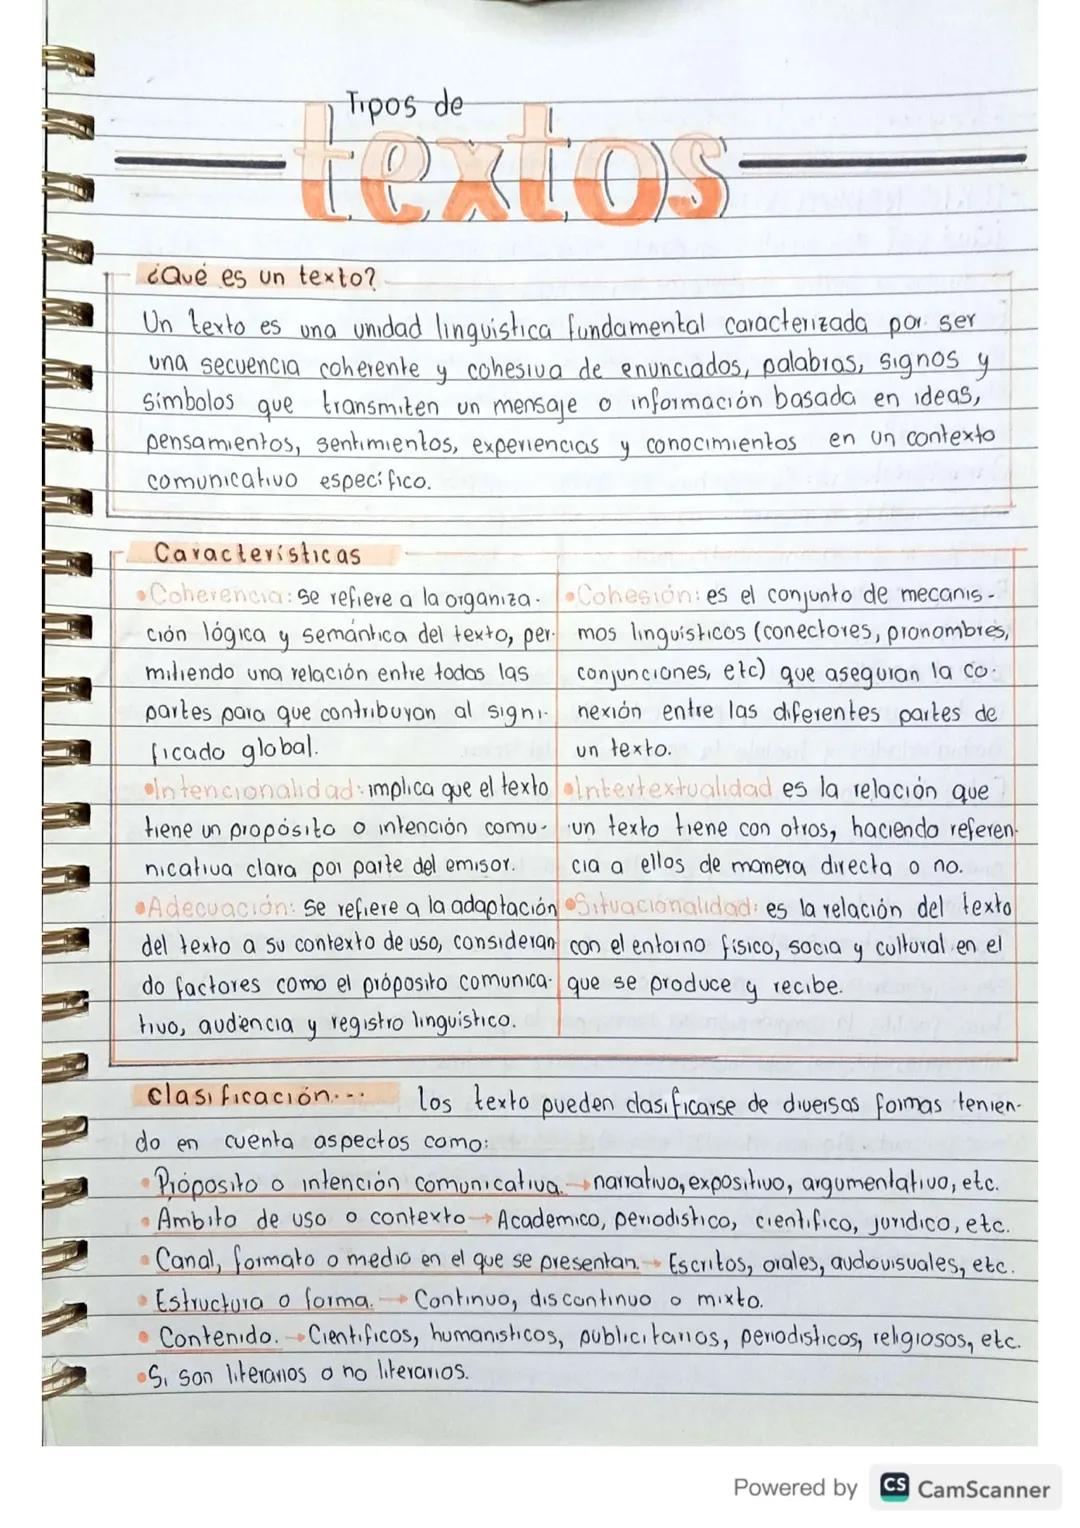 Tipos de
textos
¿Qué es un texto?
Un texto es una unidad lingüística fundamental caracterizada por ser
una secuencia coherente y cohesiva de enunciados, palabras, signos y
símbolos que transmiten un mensaje o información basada en ideas,
pensamientos, sentimientos, experiencias y conocimientos en un contexto
comunicativo específico.
Características
•Coherencia: se refiere a la organiza-
ción lógica y semántica del texto, per-
mitiendo una relación entre todas las
partes para que contribuyan al signi-
ficado global.
•Intencionalidad: implica que el texto
tiene un propósito o intención comu-
nicativa clara por parte del emisor.
•Adecuación: Se refiere a la adaptación
del texto a su contexto de uso, consideran
do factores como el próposito comunica-
tivo, audiencia y registro lingüístico.
•Cohesión: es el conjunto de mecanis-
mos lingüísticos (conectores, pronombres,
conjunciones, etc) que aseguran la co-
nexión entre las diferentes partes de
un texto.
•Intertextualidad es la relación que
un texto tiene con otros, haciendo referen-
cia a ellos de manera directa o no.
•Situacionalidad: es la relación del texto
con el entorno físico, socia y cultural en el
que se produce y recibe.
clasificación... los texto pueden clasificarse de diversas formas tenien-
do en cuenta aspectos como:
•Próposito o intención comunicativa.→narrativo, expositivo, argumentativo, etc.
•Ambito de uso o contexto→Academico, periodístico, científico, jurídico, etc.
•Canal, formato o medio en el que se presentan.→Escritos, orales, audiovisuales, etc.
•Estructura o forma.→Continuo, discontinuo o mixto.
•Contenido.→Científicos, humanísticos, publicitarios, periodísticos, religiosos, etc.
•Si son literarios o no literarios.
Powered by CS CamScanner